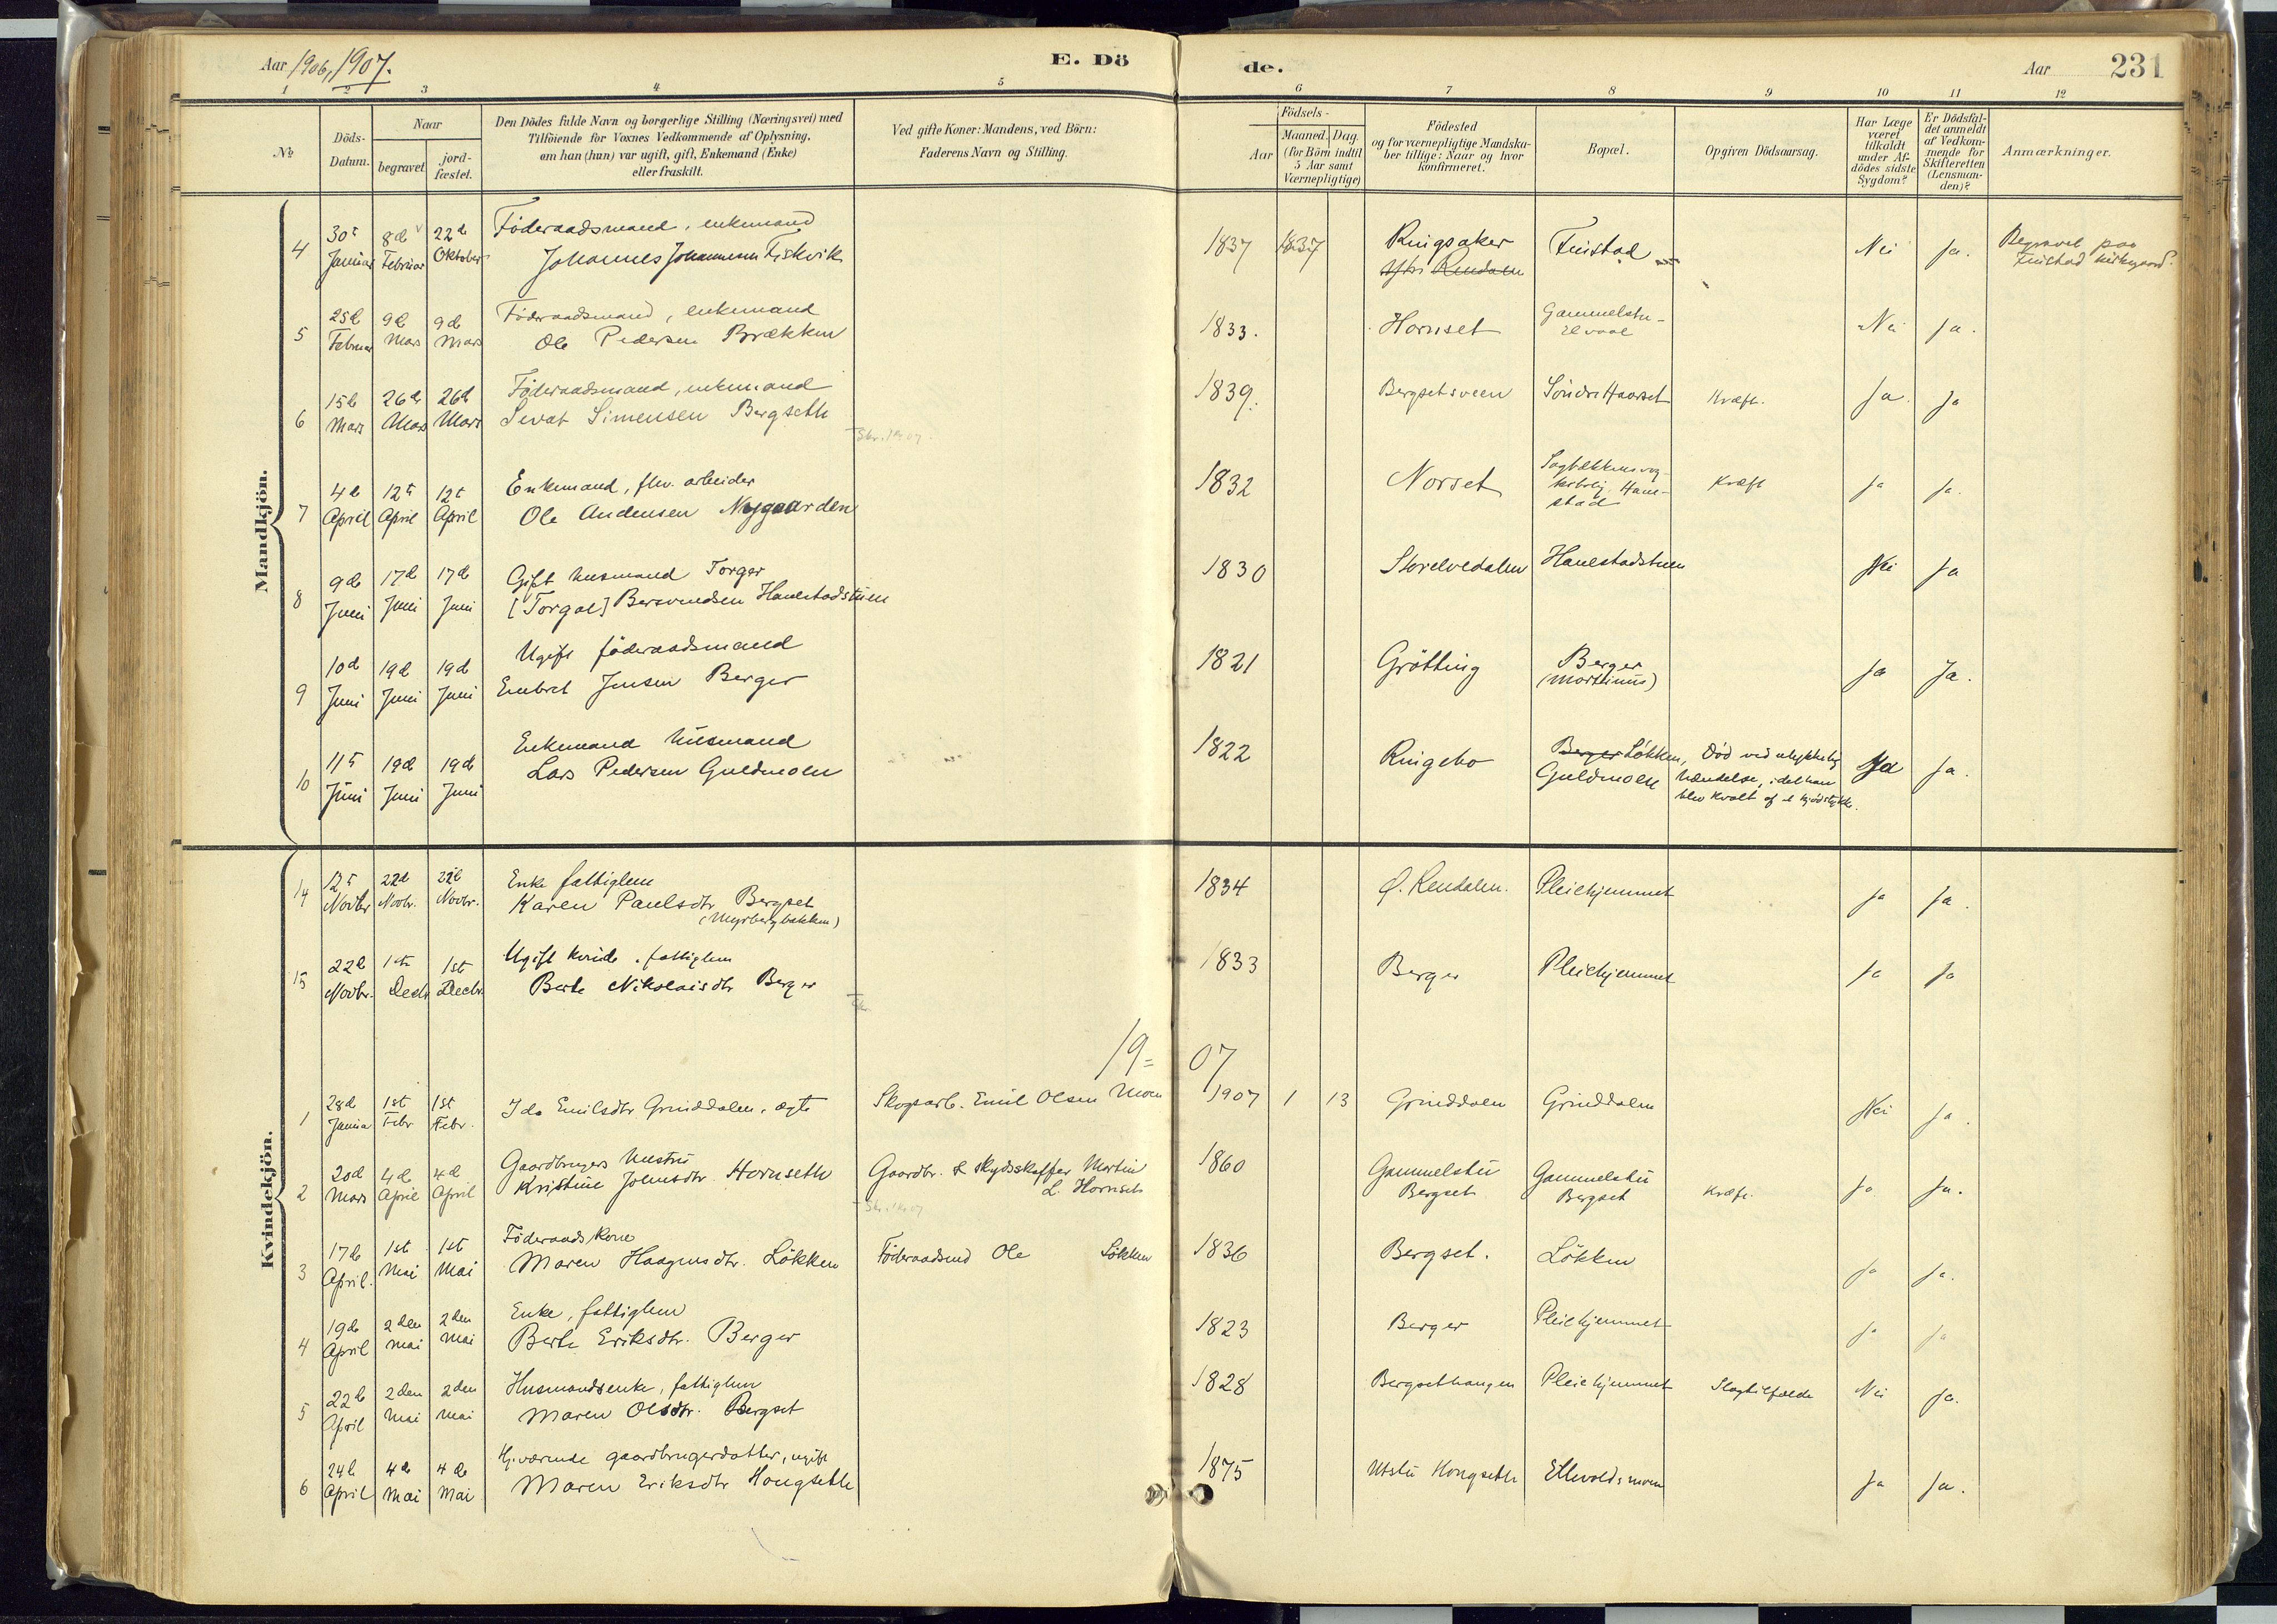 Aar 1906, 1907.
E. Dö
de.
Aar
231
1 2 3 4 5 6 7 8 9 10 11 12
No
Döds-
Datum.
Naar
begravet
jord-
fæstet.
Den Dödes fulde Navn og borgerlige Stilling (Næringsvei) med
Tilföiende for Voxnes Vedkommende af Oplysning,
om han (hun) var ugift, gift, Enkemand (Enke)
eller fraskilt.
Ved gifte Koner: Mandens, ved Börn:
Faderens Navn og Stilling.
Födsels-
Aar
Maaned. Dag.
(for Börn indtil
5 Aar samt
Værnepligtige)
Födested
og for værnepligtige Mandska-
ber tillige: Naar og hvor
Konfirmeret.
Bopæl.
Opgiven Dödsaarsag.
Har Læge
været
tilkaldt
under Af-
dödes sidste
Sygdom?
Er Dödsfal-
det anmeldt
af Vedkom-
mende for
Skifteretten
(Lensman-
den)?
Anmærkninger.
Mandkjön.
4 30t Januar 8d Februar 22d Oktober
Föderaadsmand, enkemand
Johannes Johannesen Fiskvik
1837 1837 Ringsaker
Ytri Rendalen
Finstad
Nei Ja.
Begravet paa
Finstad kirkegaard.
5 25d Februar 9d Mars 9d Mars
Föderaadsmand, enkemand
Ole Pedersen Brækken
1833. Hornset
Gammelstu-
Elvaal
Nei Ja.
6 15d Mars 26d Mars 26d Mars
Föderaadsmand, enkemand
Sevat Simensen Bergseth
Skr. 1907.
1839. Bergsetsveen Söndre Haarset Kræft. Ja. Ja
7 4d April 12t April 12t April
Enkemand, fhv. arbeider
Ole Andensen Nygaarden
1832 Norset
Hane-
stad
Kræft Ja Ja.
8 9d Juni 17d Juni 17d Juni
Gift husmand Torger
[Torgal] Bersvendsen Hanestadstuen
1830 Storelvedalen Hanestadstuen Nei Ja
9 10d Juni 19d Juni 19d Juni
Ugift föderaadsmand
Embret Jensen Berger
1821 Grötting Berger
(Mortinus)
Ja Ja.
10 11t Juni 19d Juni 19d Juni
Enkemand husmand
Lars Pedersen Guldmoen
1822 Ringebo
Berger Lökken,
Guldmoen
Död ved ulykkelig
hændelse, idet han
blev kvalt af et kjödstykke.
Ja Ja.
Kvindekjön.
14 12t Novbr 22d Novbr. 22d Novbr.
Enke fattiglem
Karen Paulsdtr Bergset
(Myrbergbakken)
1834 Ø. Rendalen. Pleiehjemmet Ja Ja.
15 22d Novbr. 1st Decbr 1st Decbr.
Ugift kvinde, fattiglem
Berte Nikolaisdtr Berger
1833 Berger Pleiehjemmet Ja Ja
19=07
1 28d Januar 1st Febr 1st Febr.
Ida Emilsdtr Grinddalen, ægte
Skogsarb. Emil Olsen Moen
1907 1 13 Grinddalen Grinddalen Nei Ja.
2 20d Mars 4d April 4d April
Gaardbrugers hustru
Kristine Johnsdtr Hornseth
Gaardbr. & skydsskaffer Martin
L. Hornseth
Skr. 1907
1860 Gammelstu
Bergset
Gammelstu
Bergset
Kræft. Ja Ja.
3 17d April. 1st Mai 1st Mai
Föderaadskone
Maren Haagensdtr. Lökken
Föderaadsmd Ole Lökken
1836 Bergset. Lökken Ja Ja.
4 19d April 2den Mai 2den Mai
Enke, fattiglem
Berte Eriksdtr. Berger
1823 Berger Pleiehjemmet Ja Ja
5 22d April 2den Mai 2den Mai
Husmandsenke, fattiglem
Maren Olsdtr. Bergset
1828 Bergsethaugen Pleiehjemmet Slagtilfælde Nei Ja.
6 24d April 4de Mai 4de Mai
Hj.værende gaardbrugerdatter, ugift
Maren Eriksdtr Hongseth
1875 Utstu Hongseth Ellevoldsmoen Ja Ja.